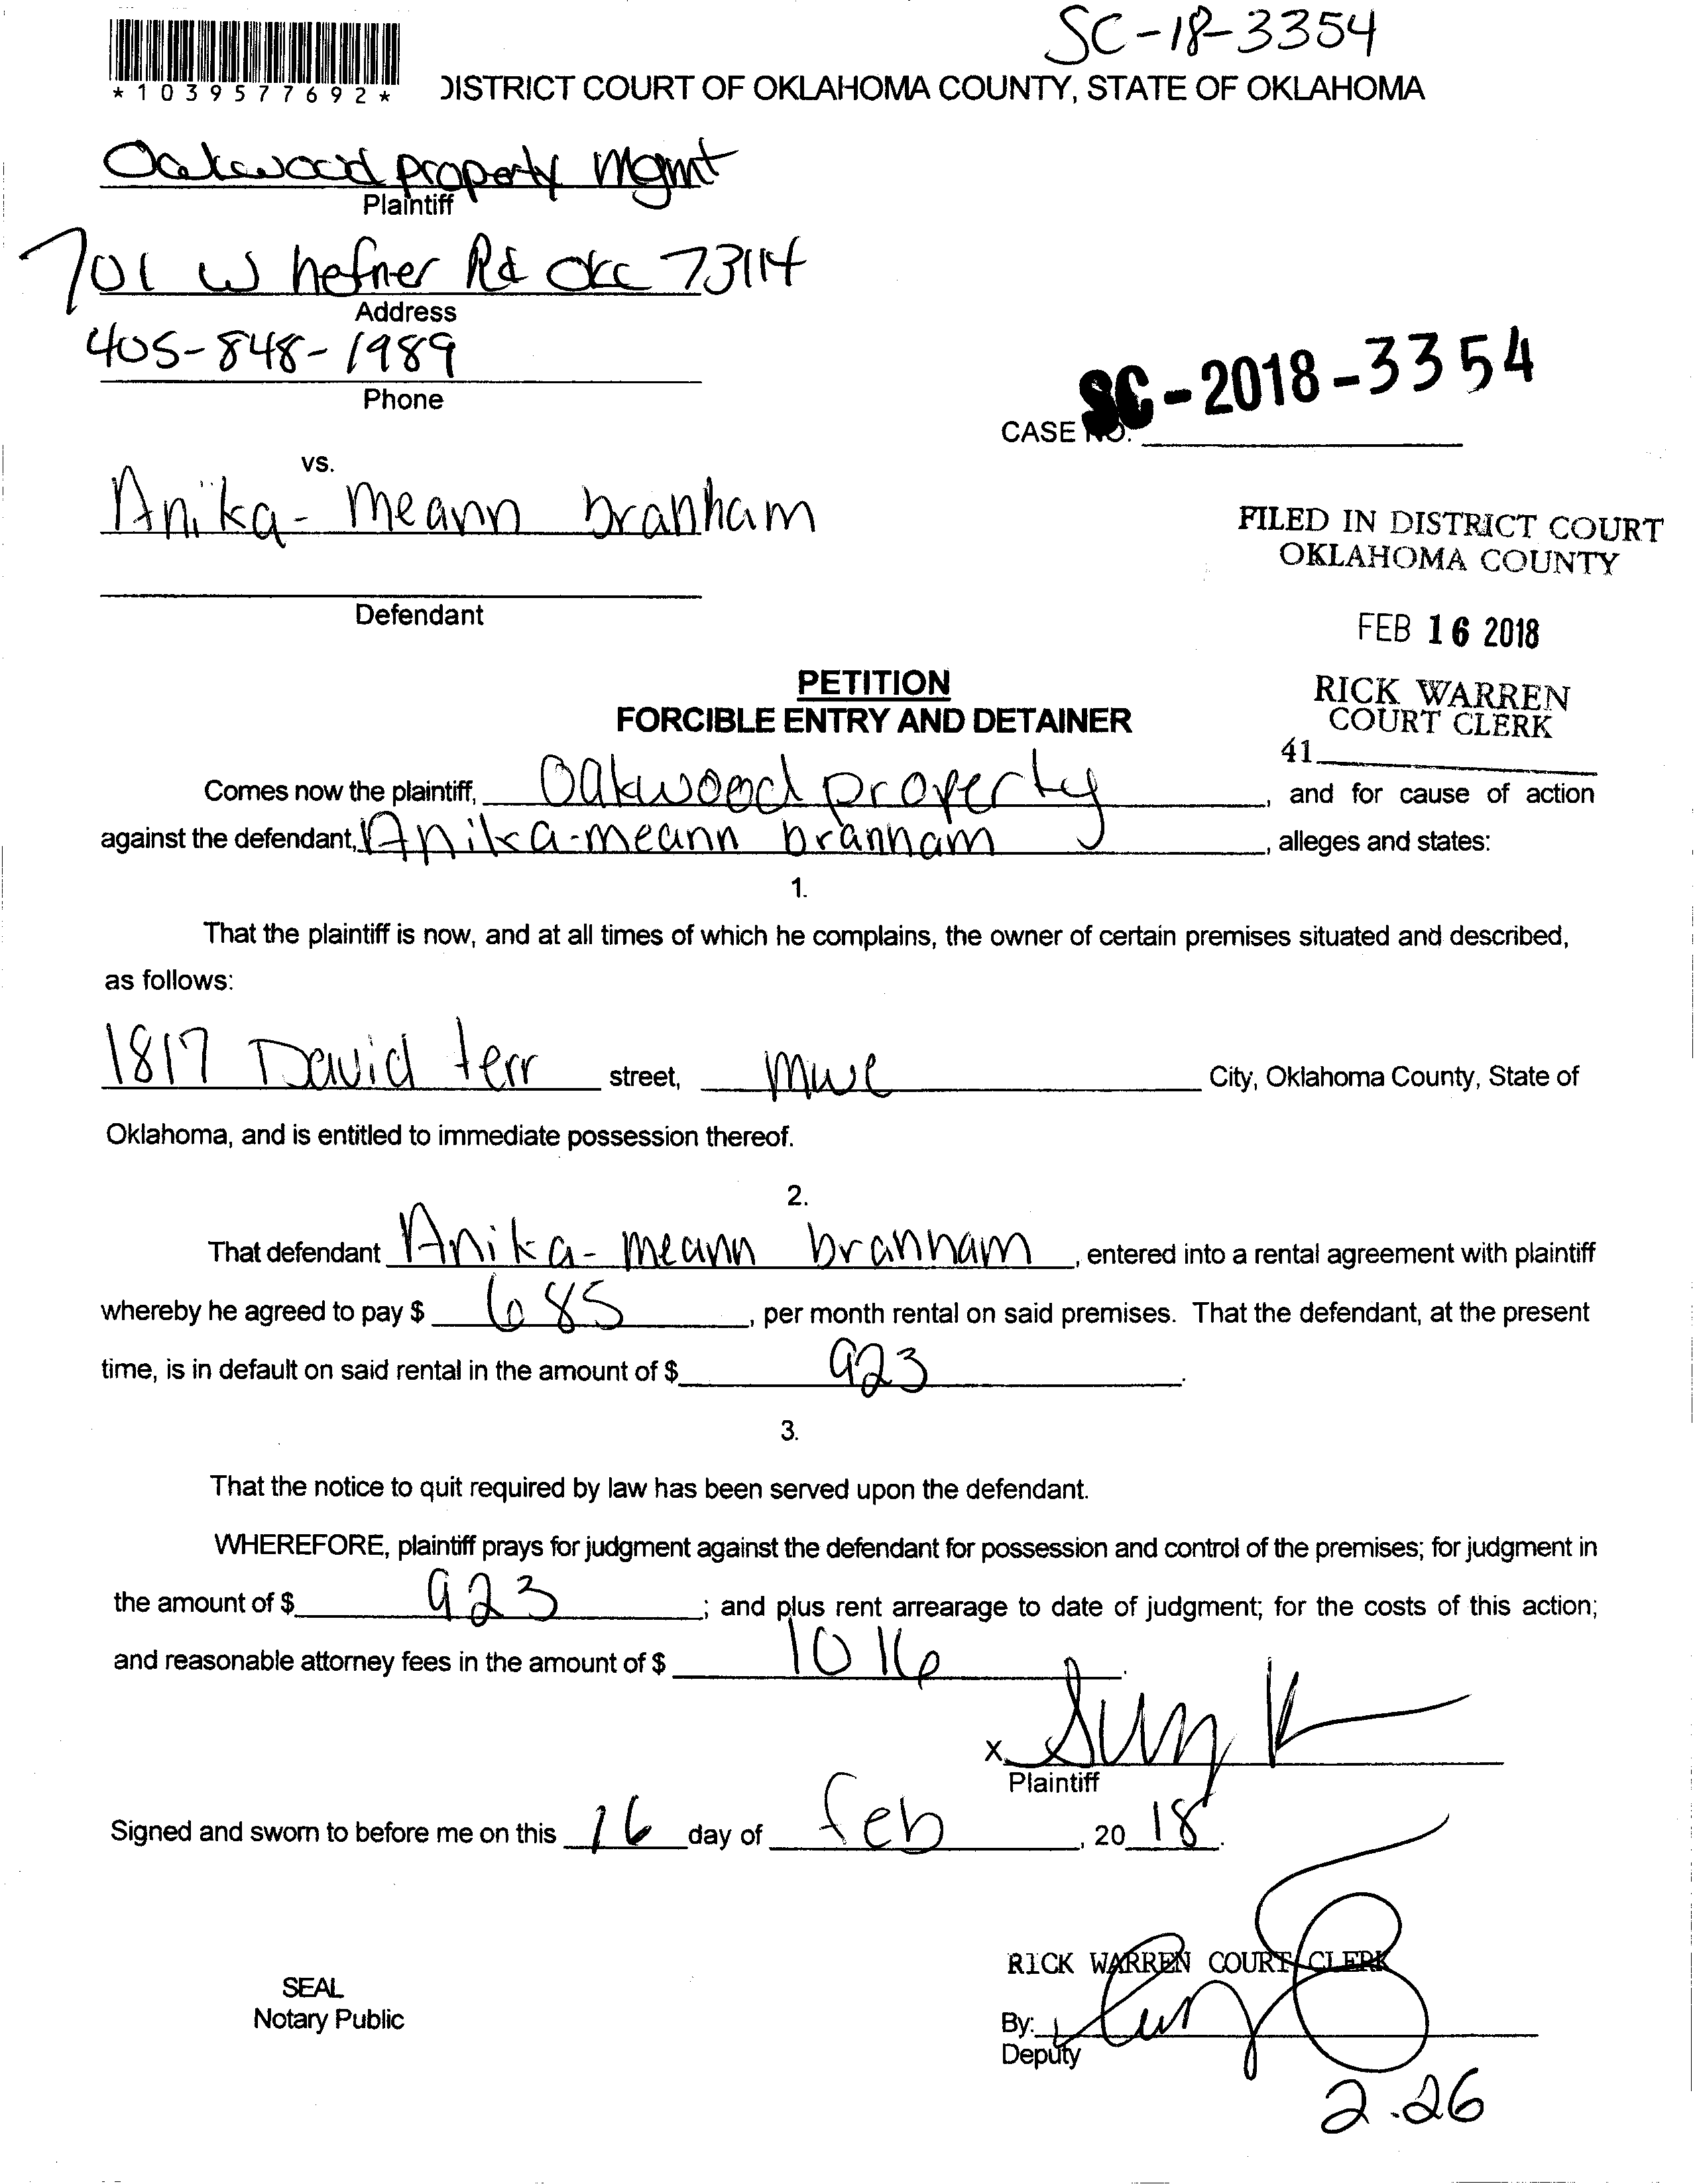 SC-18-3354
*1039577692*
DISTRICT COURT OF OKLAHOMA COUNTY, STATE OF OKLAHOMA
Oakwood property Mgmt
Plaintiff
701 W hefner Rd OKC 73114
Address
405-848-1989
Phone
SC-2018-3354
CASE NO.
vs.
Anika-meann branham
Defendant
FILED IN DISTRICT COURT
OKLAHOMA COUNTY
FEB 16 2018
RICK WARREN
COURT CLERK
41
PETITION
FORCIBLE ENTRY AND DETAINER
Comes now the plaintiff, Oakwood property, and for cause of action
against the defendant, Anika-meann branham, alleges and states:
1.
That the plaintiff is now, and at all times of which he complains, the owner of certain premises situated and described,
as follows:
1817 David terr street, mwc City, Oklahoma County, State of
Oklahoma, and is entitled to immediate possession thereof.
2.
That defendant Anika-meann branham, entered into a rental agreement with plaintiff
whereby he agreed to pay $ 685, per month rental on said premises. That the defendant, at the present
time, is in default on said rental in the amount of $ 923.
3.
That the notice to quit required by law has been served upon the defendant.
WHEREFORE, plaintiff prays for judgment against the defendant for possession and control of the premises; for judgment in
the amount of $ 923; and plus rent arrearage to date of judgment; for the costs of this action;
and reasonable attorney fees in the amount of $ 1016.
x
Plaintiff
Signed and sworn to before me on this 16 day of feb, 2018.
RICK WARREN COURT CLERK
SEAL
Notary Public
By:
Deputy
2.26